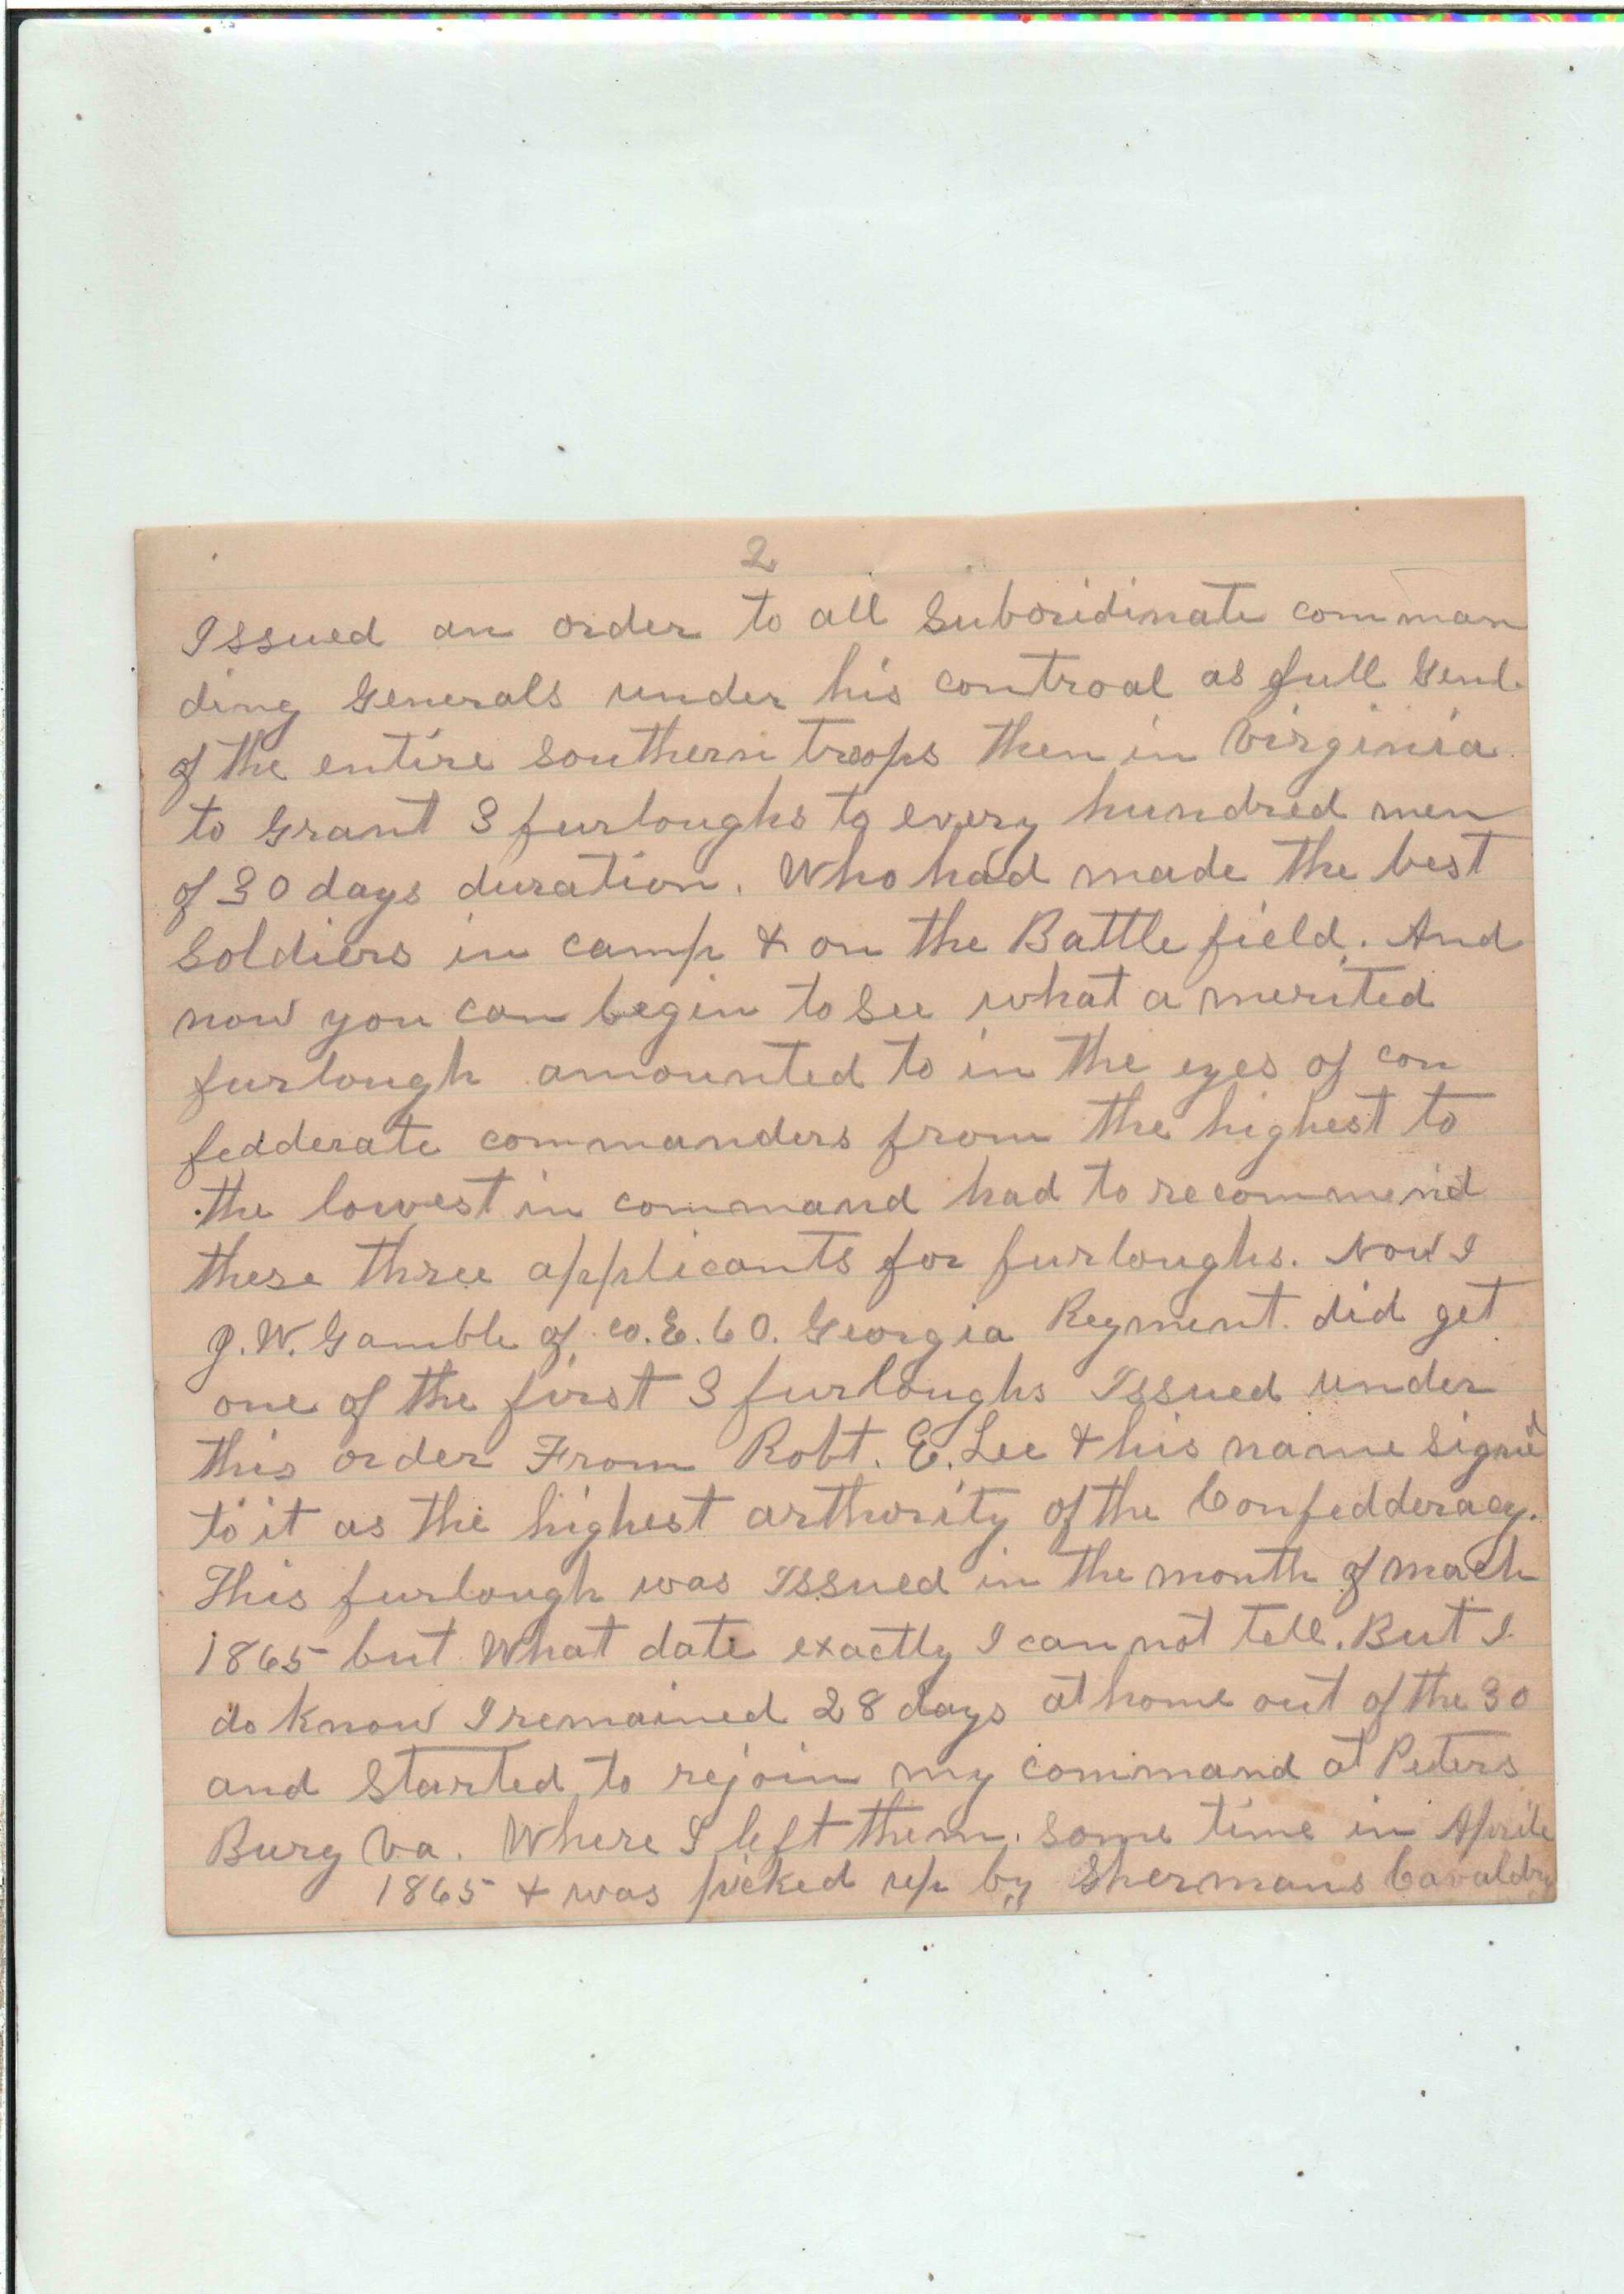 2
Issued an order to all Suboridinate comman
ding Generals under his controal as full Genl.
of the entire Southern troops then in Virginia
to Grant 3 furloughs to every hundred men
of 30 days duration. Who had made the best
Soldiers in camp & on the Battle field. And
now you can begin to See what a merited
furlough amounted to in the eyes of con
fedderate commanders from the highest to
the lowest in command had to recommend
these three applicants for furloughs. Now I
J.W. Gamble of Co. E. 60. Georgia Regment. did get
one of the first 3 furloughs Issued under
this order From Robt. E. Lee & his name signed
to it as the highest arthority of the Confedderacy.
This furlough was Issued in the month of Mach
1865 but What date exactly I can not tell. But I
do Know I remained 28 days at home out of the 30
and Started to rejoin my command at Peters
Burg Va. Where I left them. Some time in Aprile
1865 & was picked up by Shermans Cavaldry